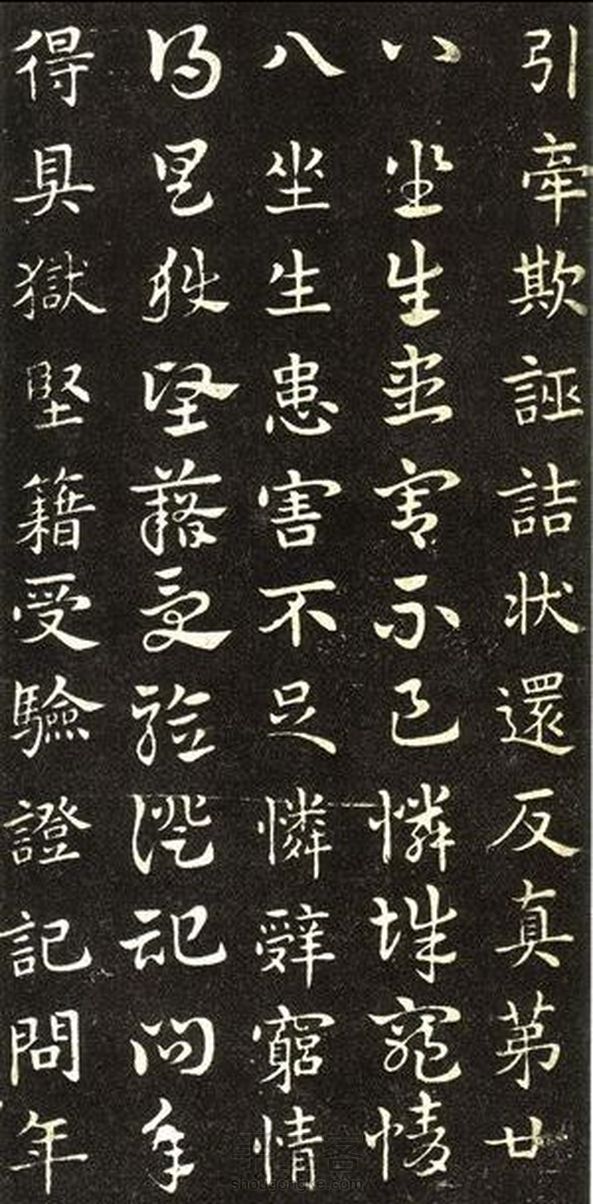 引牽欺誣詰状還反真苐廿
八坐生患害不足憐辤窮情
八坐生患害不足憐辤窮情
得具獄堅藉受驗證記問年
得具獄堅籍受驗證記問年